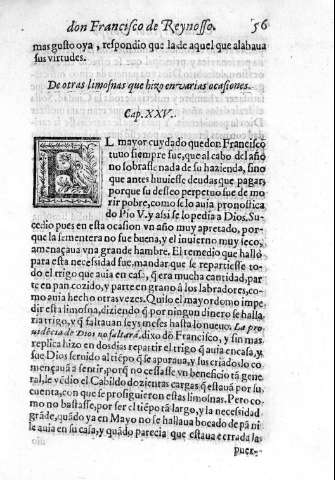 don Francisco de Reynosso. 56
mas gusto oya, respondio que la de aquel que alabaua
sus virtudes.
De otras limosnas que hizo en varias ocasiones.
Cap. XXV.
EL mayor cuydado que don Francisco
tuuo siempre fue, que al cabo del año
no sobrasse nada de su hazienda, sino
que antes huuiesse deudas que pagar,
porque su desseo perpetuo fue de mo
rir pobre, como se lo auia pronostica
do Pio V. y assi se lo pedia a Dios. Su
cedio pues en esta ocasion vn año muy apretado, por-
que la sementera no fue buena, y el inuierno muy seco,
amenaçaua vna grande hambre. El remedio que hallò
para esta necessidad fue, mandar que se repartiesse to-
do el trigo que auia en casa, q̃ era mucha cantidad, par
te en pan cozido, y parte en grano à los labradores, co-
mo auia hecho otras vezes. Quiso el mayordomo impe
dir esta limosna, diziendo q̃ por ningun dinero se halla
ria trigo, y q̃ faltauan seys meses hasta lo nueuo. La pro
uidẽcia de Dios no faltarà, dixo dõ Francisco, y sin mas
replica hizo en dos dias repartir el trigo q̃ auia en casa, y
fue Dios seruido al tiẽpo q̃ se apuraua, y sus criados lo co
mençauã a sentir, porq̃ no cessasse vn beneficio tã gene
ral, le vẽdio el Cabildo dozientas cargas q̃ estauã por su
cuenta, con que se prosiguieron estas limosnas. Pero co-
mo no bastasse, por ser el tiẽpo tã largo, y la necessidad
grãde, quãdo ya en Mayo no se hallaua bocado de pã ni
le auia en su casa, y quãdo parecia que estaua cerrada la
puer-